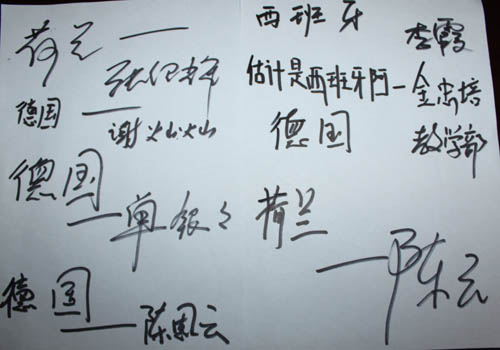 荷兰——
张伊梓
德国——
谢灿灿
德国
——单银银
德国
——陈凤云
西班牙
李霞
估计是西班牙阿—金忠培
德国
教学部
荷兰
——陈云